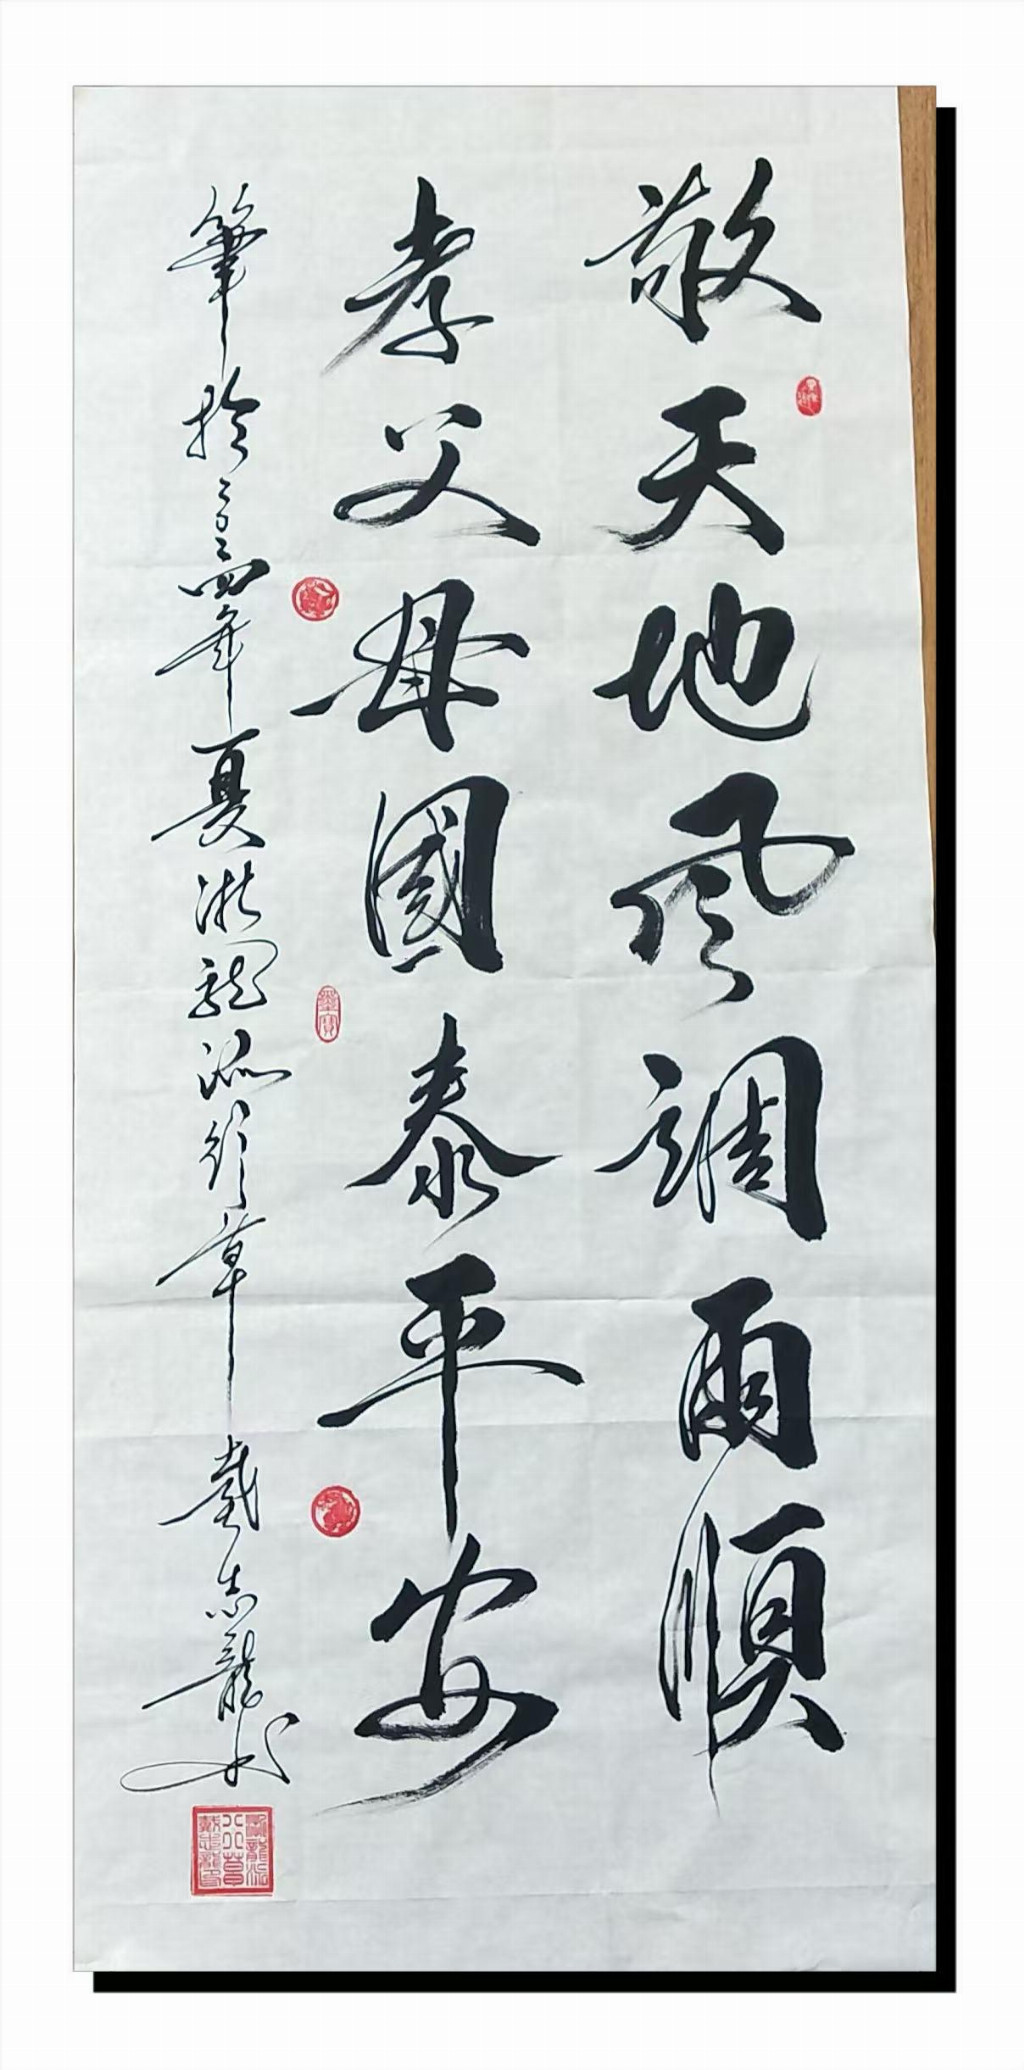 敬天地风調雨順
孝父母國泰平安
筆於二〇二四年夏浙龍游行草戴志龍书